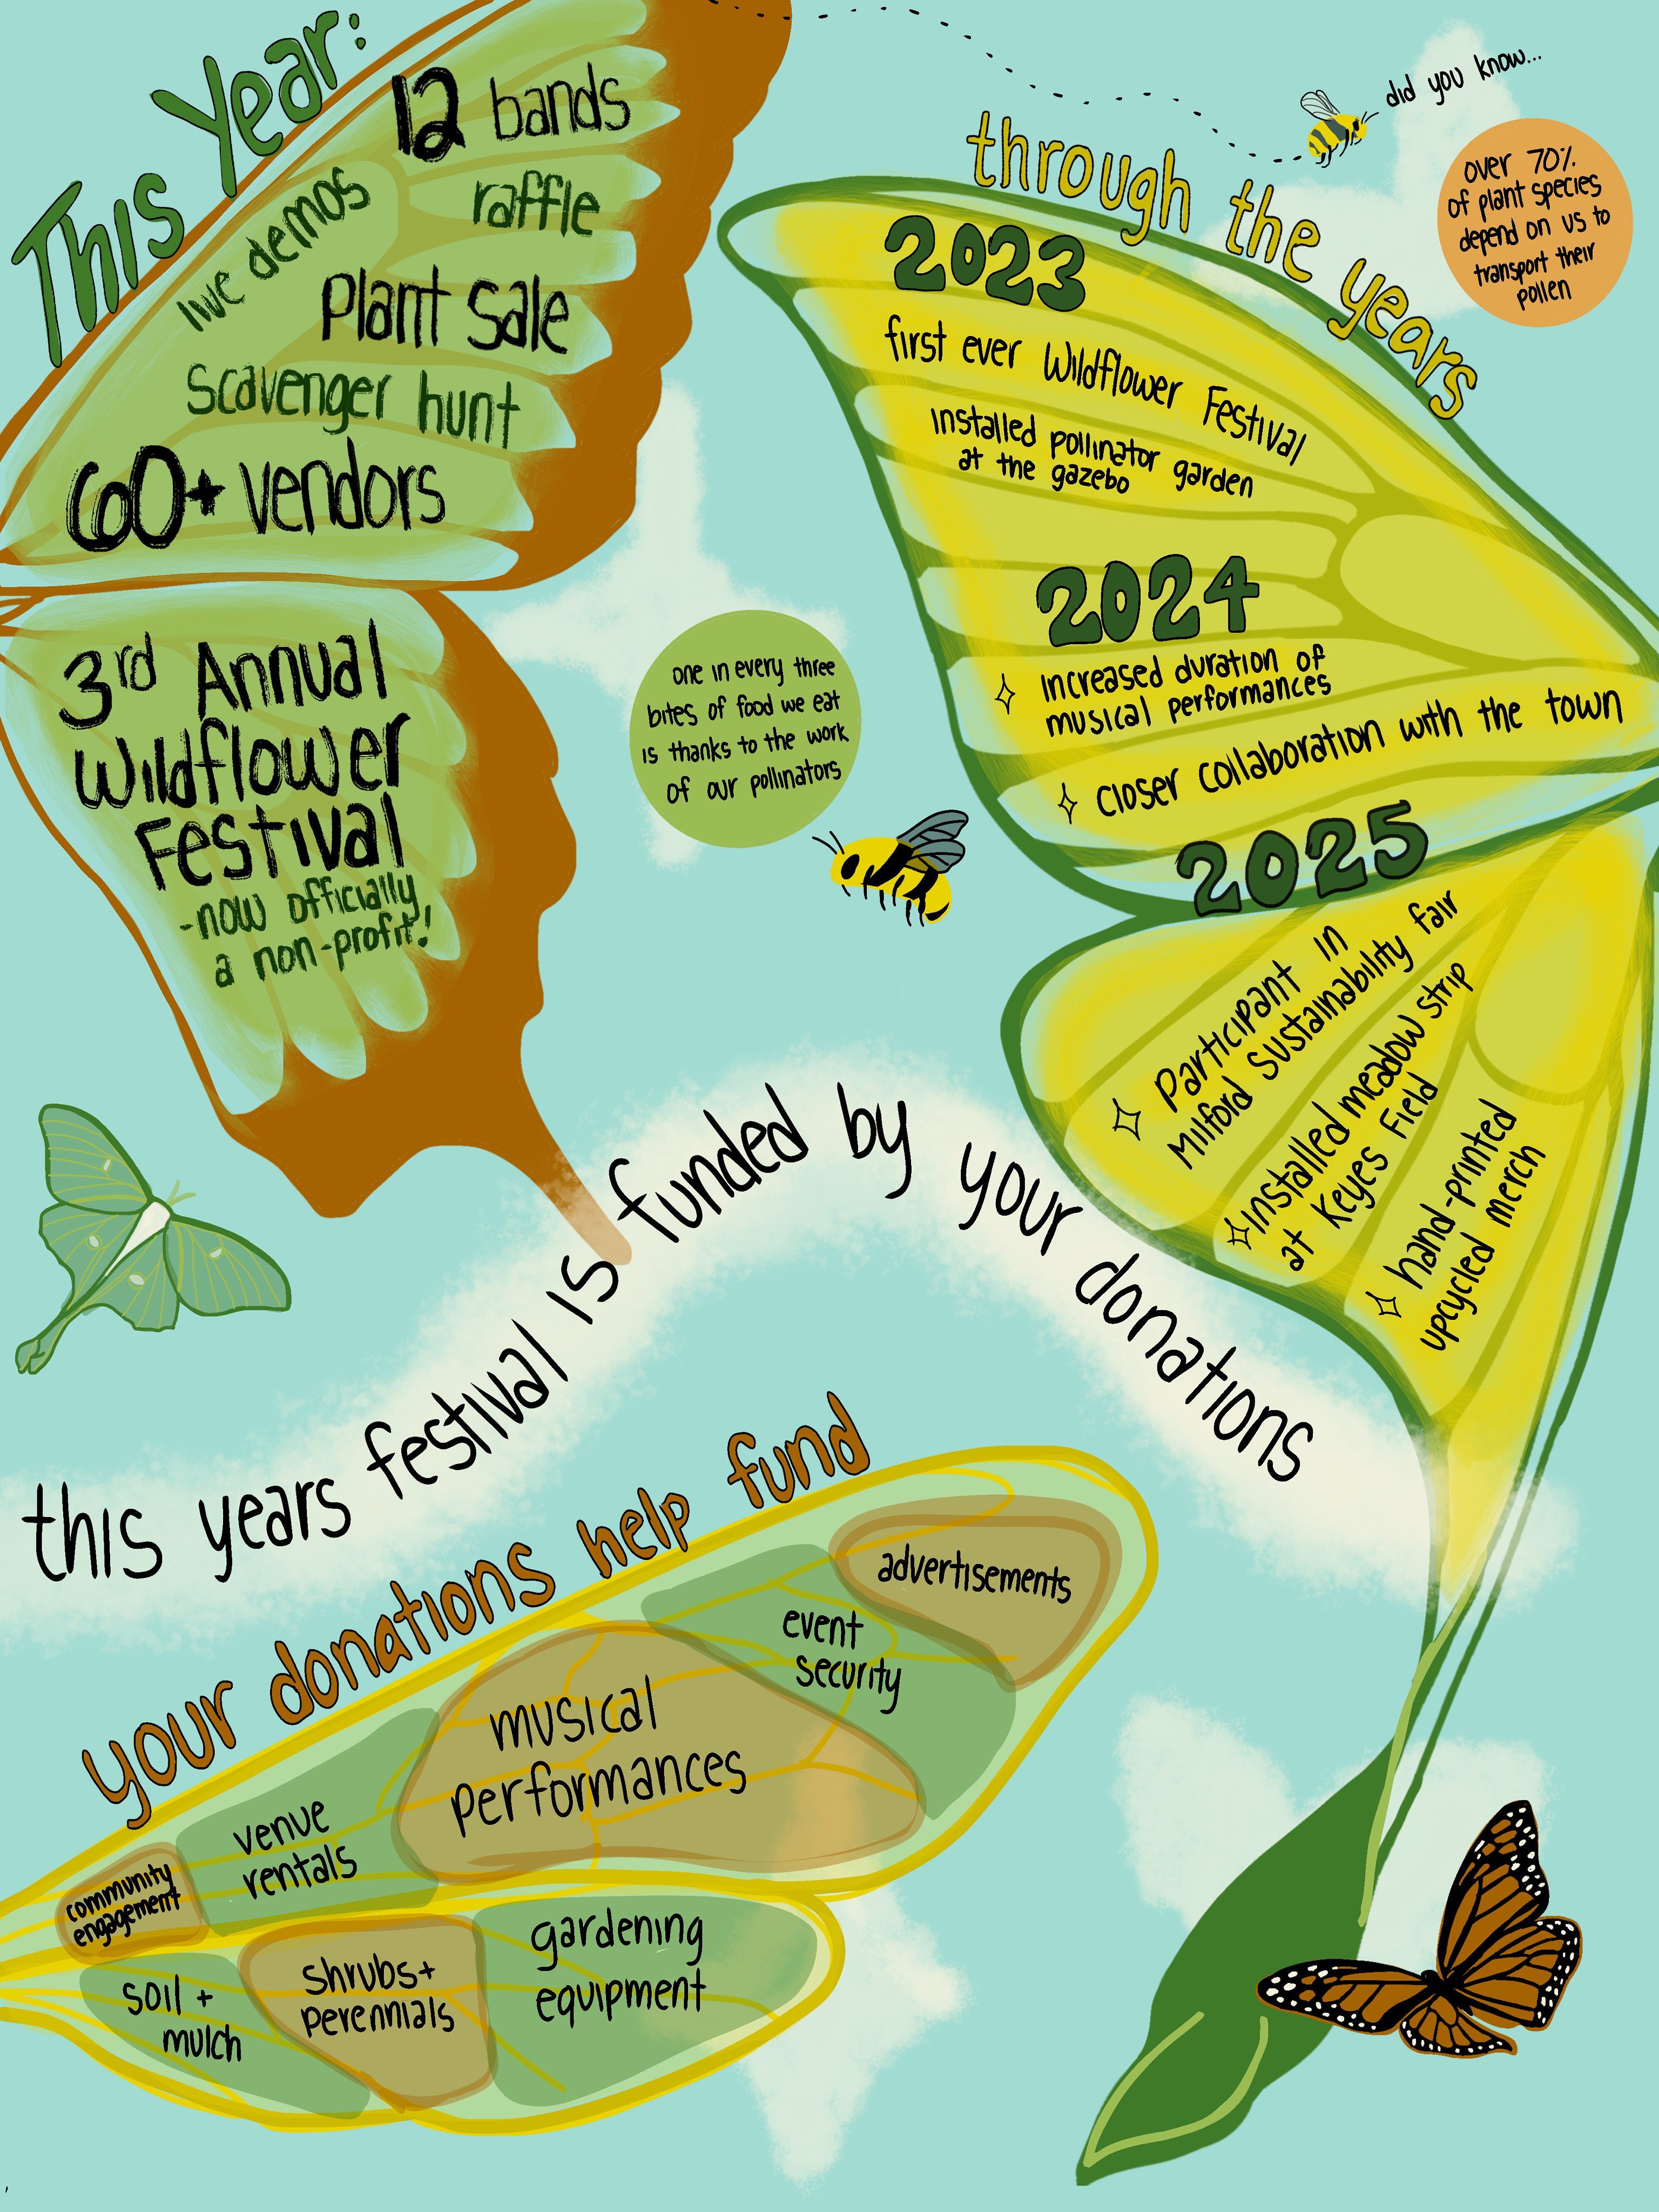 This Year:
12 bands
live demos
raffle
Plant sale
Scavenger hunt
60+ vendors
3rd Annual
Wildflower
Festival
-now officially
a non-profit!
did you know...
over 70%
of plant species
depend on us to
transport their
pollen
through the years
2023
first ever Wildflower Festival
Installed pollinator garden
at the gazebo
2024
Increased duration of
musical performances
closer collaboration with the town
2025
Participant in
Milford Sustainability fair
Installed meadow strip
at Keyes Field
hand-printed
upcycled merch
one in every three
bites of food we eat
is thanks to the work
of our pollinators
this years festival is funded by your donations
your donations help fund
advertisements
event
security
musical
performances
venue
rentals
community
engagement
soil +
mulch
Shrubs+
perennials
gardening
equipment